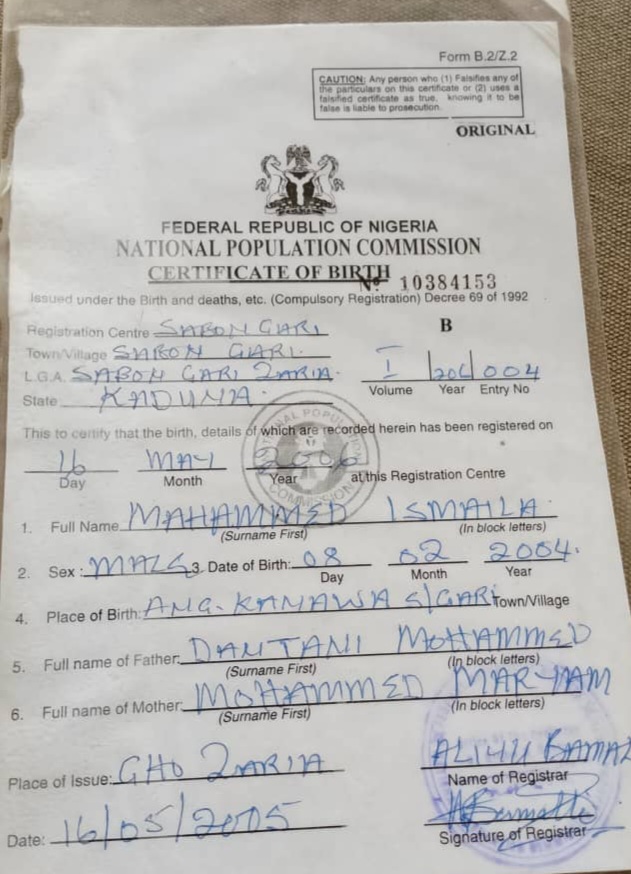 Form B.2/Z.2
CAUTION: Any person who (1) Falsifies any of
the particulars on this certificate or (2) uses a
falsified certificate as true, knowing it to be
false is liable to prosecution.
ORIGINAL
FEDERAL REPUBLIC OF NIGERIA
NATIONAL POPULATION COMMISSION
CERTIFICATE OF BIRTH
Nº 10384153
Issued under the Birth and deaths, etc. (Compulsory Registration) Decree 69 of 1992
Registration Centre SABON GARI B
Town/Village SABON GARI.
L.G.A. SABON GARI ZARIA. I 004
Volume Year Entry No
State KADUNA.
This to certify that the birth, details of which are recorded herein has been registered on
16 MAY at this Registration Centre
Day Month Year
NATIONAL POPULATION COMMISSION
1. Full Name MAHAMMED ISMAILA.
(Surname First) (In block letters)
2. Sex: MALE 3. Date of Birth: 08 02 2004.
Day Month Year
4. Place of Birth: ANG. KANAWA S/GARI Town/Village
5. Full name of Father: DANTANI MOHAMMED
(Surname First) (In block letters)
6. Full name of Mother: MOHAMMED MARYAM
(Surname First) (In block letters)
Place of Issue: GHO ZARIA ALIYU BAMAL
Name of Registrar
Date: 16/05/2005
Signature of Registrar